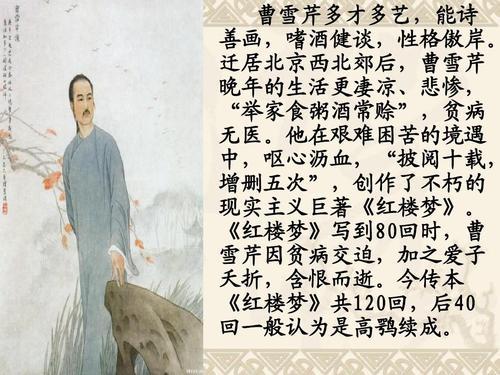 曹雪芹多才多艺，能诗
善画，嗜酒健谈，性格傲岸。
迁居北京西北郊后，曹雪芹
晚年的生活更凄凉、悲惨，
“举家食粥酒常赊”，贫病
无医。他在艰难困苦的境遇
中，呕心沥血，“披阅十载，
增删五次”，创作了不朽的
现实主义巨著《红楼梦》。
《红楼梦》写到80回时，曹
雪芹因贫病交迫，加之爱子
夭折，含恨而逝。今传本
《红楼梦》共120回，后40
回一般认为是高鹗续成。